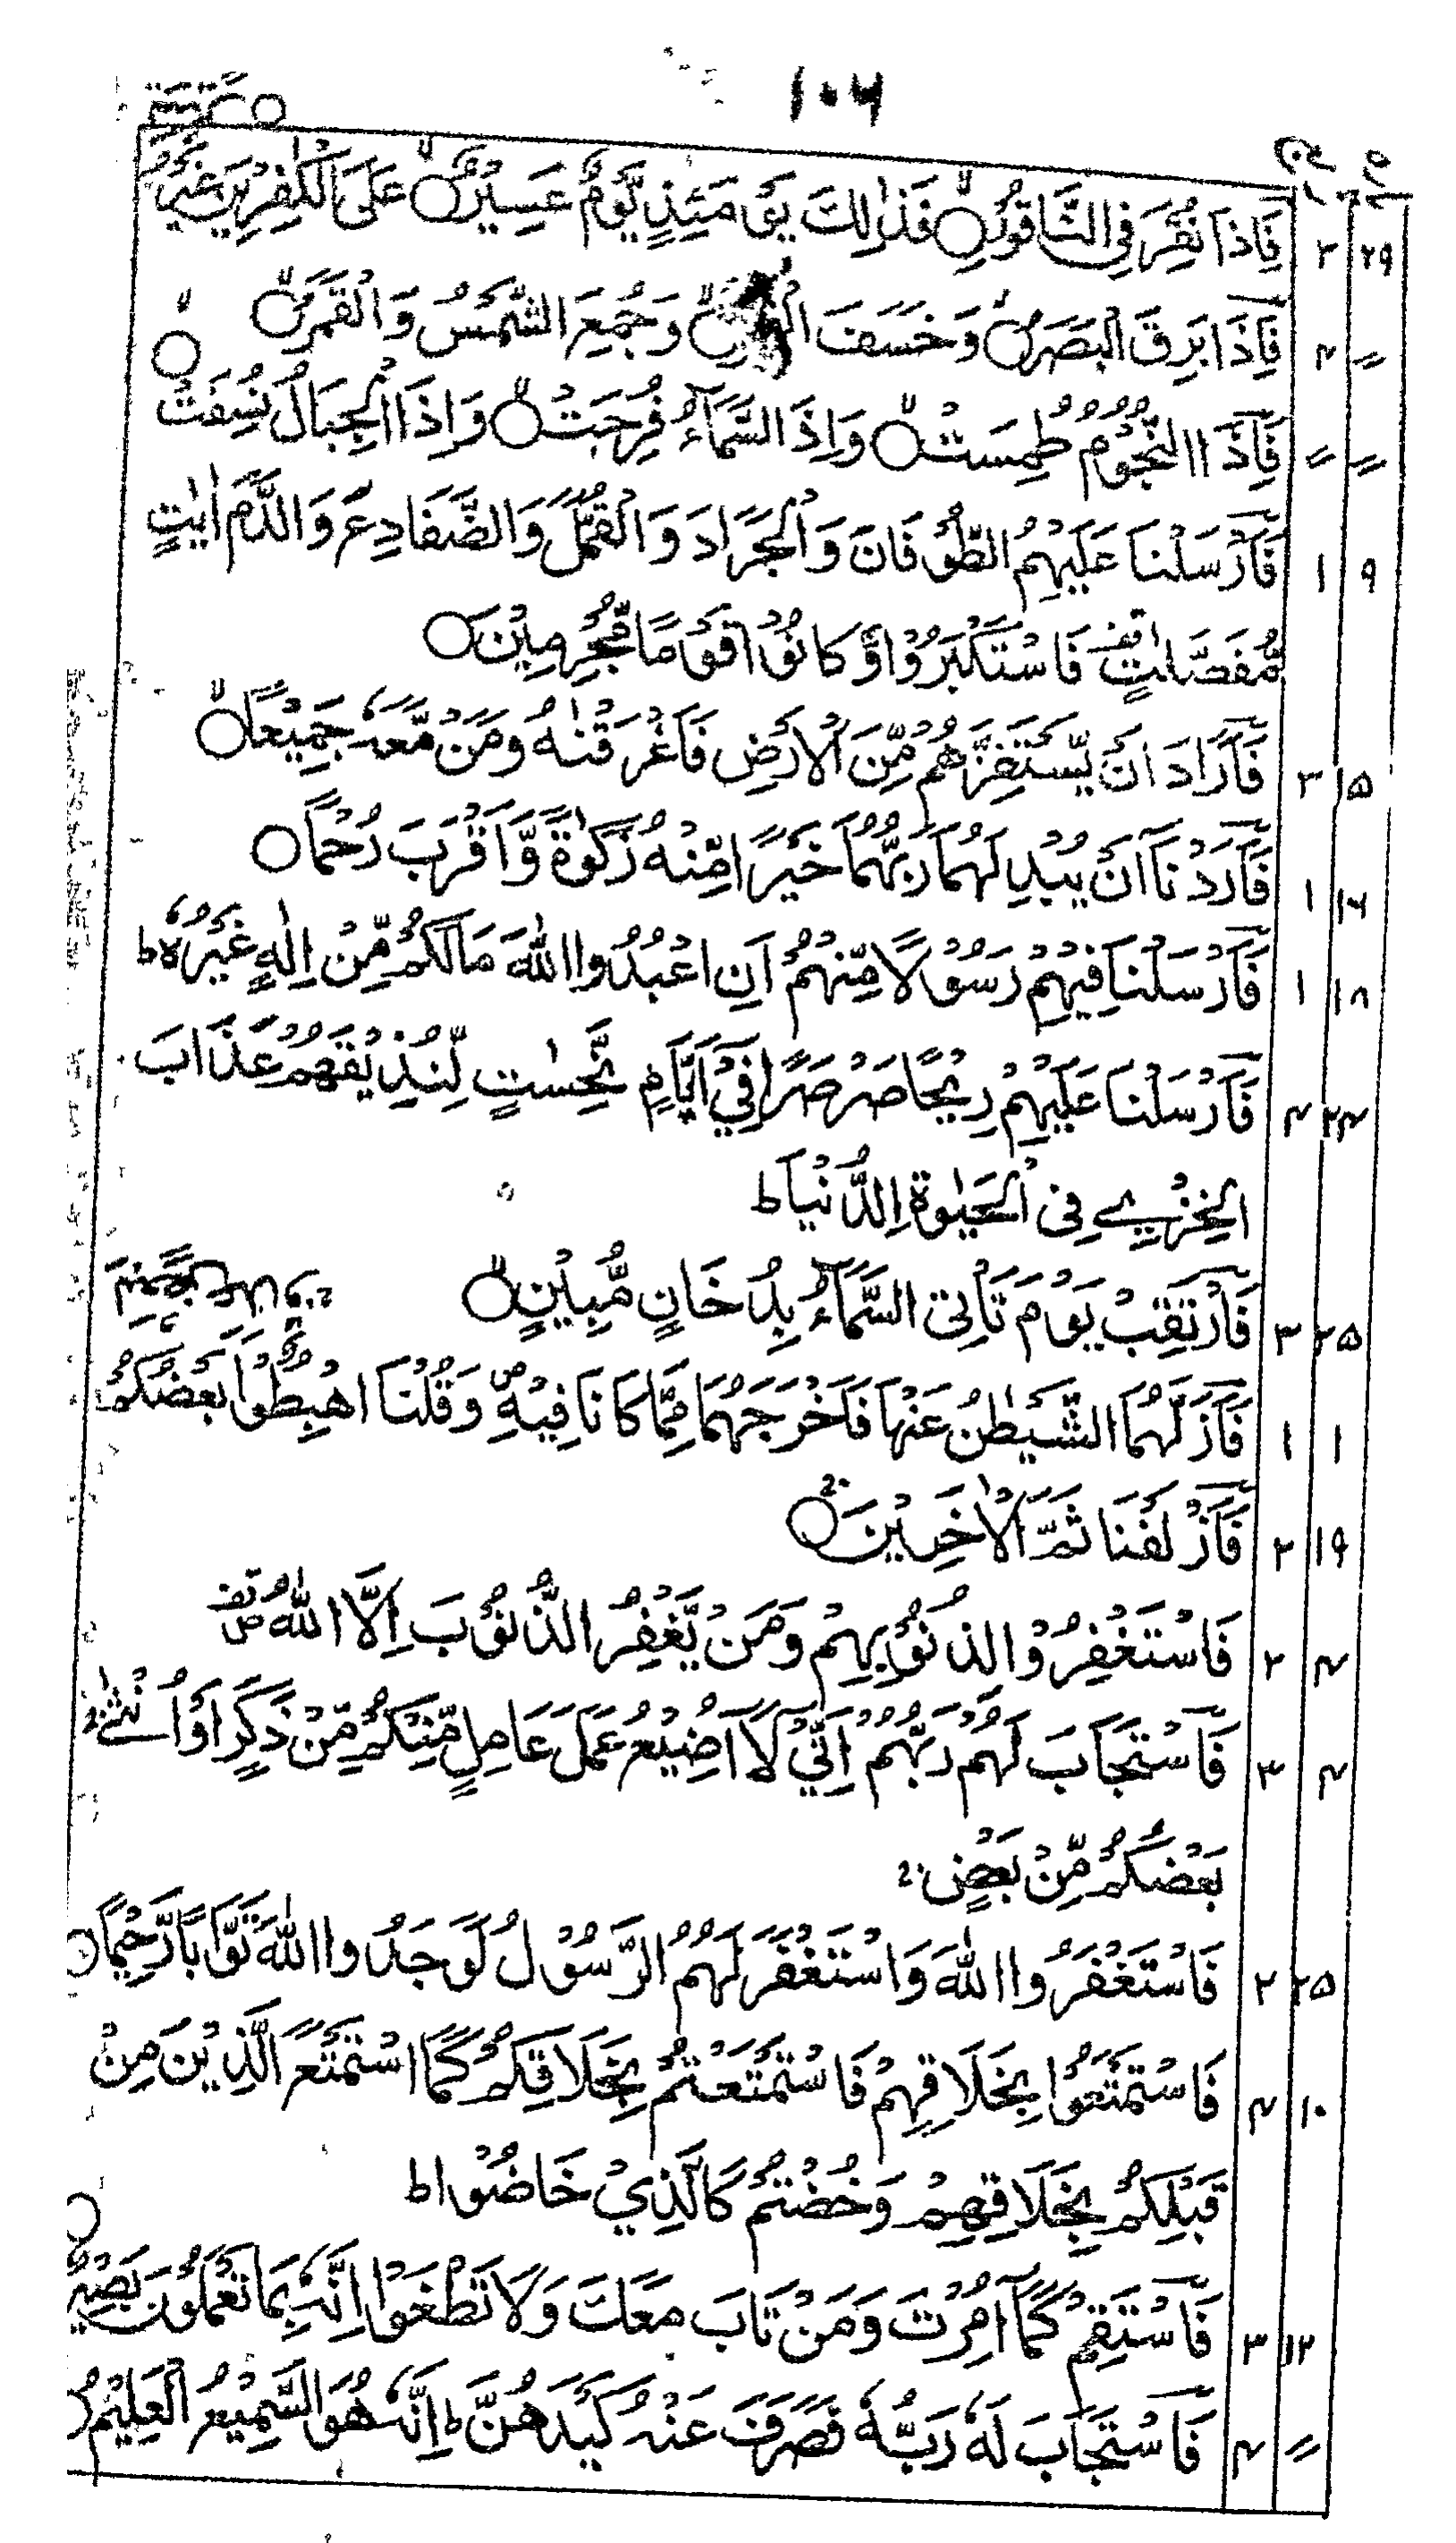 ١٠٦
فَاِذَا نُقِرَ فِی النَّاقُوْرِ ۙ فَذٰلِكَ يَوْمَئِذٍ يَّوْمٌ عَسِيْرٌ ۙ عَلَى الْكٰفِرِيْنَ غَيْرُ ٢ ٢٩
فَاِذَا بَرِقَ الْبَصَرُ ۙ وَخَسَفَ وَجُمِعَ الشَّمْسُ وَالْقَمَرُ ۙ ٣ //
فَاِذَا النُّجُوْمُ طُمِسَتْ ۙ وَاِذَا السَّمَآءُ فُرِجَتْ ۙ وَاِذَا الْجِبَالُ نُسِفَتْ ۙ // //
فَاَرْسَلْنَا عَلَيْهِمُ الطُّوْفَانَ وَالْجَرَادَ وَالْقُمَّلَ وَالضَّفَادِعَ وَالدَّمَ اٰيٰتٍ ١ ٩
مُّفَصَّلٰتٍ قف فَاسْتَكْبَرُوْا وَكَانُوْا قَوْمًا مُّجْرِمِيْنَ ○
فَاَرَادَ اَنْ يَّسْتَفِزَّهُمْ مِّنَ الْاَرْضِ فَاَغْرَقْنٰهُ وَمَنْ مَّعَهٗ جَمِيْعًا ۙ ٣ ١٥
فَاَرَدْنَا اَنْ يُّبْدِلَهُمَا رَبُّهُمَا خَيْرًا مِّنْهُ زَكٰوةً وَّاَقْرَبَ رُحْمًا ○ ١ ١٦
فَاَرْسَلْنَا فِيْهِمْ رَسُوْلًا مِّنْهُمْ اَنِ اعْبُدُوا اللّٰهَ مَا لَكُمْ مِّنْ اِلٰهٍ غَيْرُهٗ ط ١ ١٨
فَاَرْسَلْنَا عَلَيْهِمْ رِيْحًا صَرْصَرًا فِيْٓ اَيَّامٍ نَّحِسٰتٍ لِّنُذِيْقَهُمْ عَذَابَ ٤ ٢٤
الْخِزْيِ فِی الْحَيٰوةِ الدُّنْيَا ط
فَارْتَقِبْ يَوْمَ تَاْتِی السَّمَآءُ بِدُخَانٍ مُّبِيْنٍ ۙ ٣ ٢٥
فَاَزَلَّهُمَا الشَّيْطٰنُ عَنْهَا فَاَخْرَجَهُمَا مِمَّا كَانَا فِيْهِ ص وَقُلْنَا اهْبِطُوْا بَعْضُكُمْ ١ ١
فَاَزْلَفْنَا ثَمَّ الْاٰخَرِيْنَ ○ ٢ ١٩
فَاسْتَغْفَرُوْا لِذُنُوْبِهِمْ وَمَنْ يَّغْفِرُ الذُّنُوْبَ اِلَّا اللّٰهُ قف ٢ ٤
فَاسْتَجَابَ لَهُمْ رَبُّهُمْ اَنِّيْ لَآ اُضِيْعُ عَمَلَ عَامِلٍ مِّنْكُمْ مِّنْ ذَكَرٍ اَوْ اُنْثٰى ٣ ٤
بَعْضُكُمْ مِّنْ بَعْضٍ
فَاسْتَغْفَرُوا اللّٰهَ وَاسْتَغْفَرَ لَهُمُ الرَّسُوْلُ لَوَجَدُوا اللّٰهَ تَوَّابًا رَّحِيْمًا ○ ٢ ٢٥
فَاسْتَمْتَعُوْا بِخَلَاقِهِمْ فَاسْتَمْتَعْتُمْ بِخَلَاقِكُمْ كَمَا اسْتَمْتَعَ الَّذِيْنَ مِنْ ٤ ١٠
قَبْلِكُمْ بِخَلَاقِهِمْ وَخُضْتُمْ كَالَّذِيْ خَاضُوْا ط
فَاسْتَقِمْ كَمَآ اُمِرْتَ وَمَنْ تَابَ مَعَكَ وَلَا تَطْغَوْا اِنَّهٗ بِمَا تَعْمَلُوْنَ بَصِيْرٌ ٣ ١٢
فَاسْتَجَابَ لَهٗ رَبُّهٗ فَصَرَفَ عَنْهُ كَيْدَهُنَّ ط اِنَّهٗ هُوَ السَّمِيْعُ الْعَلِيْمُ ٤ //